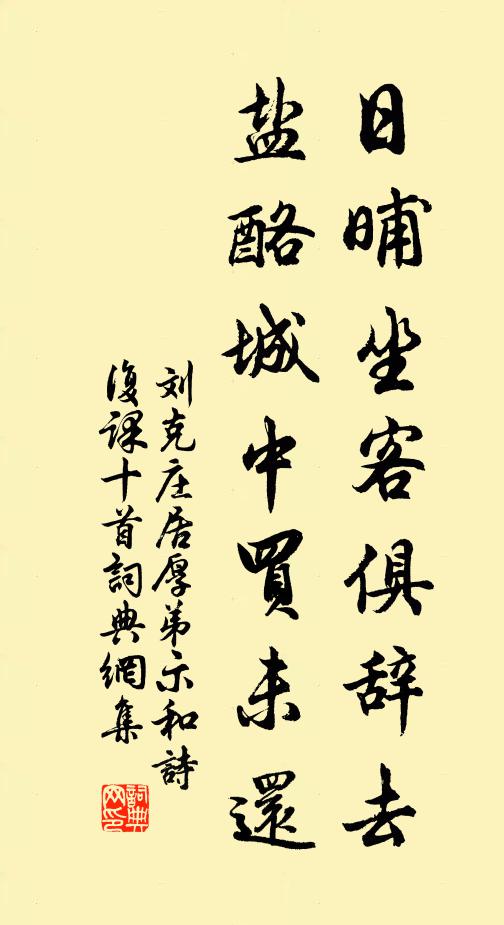 日晡坐客俱辞去
盐酪城中買未還
刘克庄居厚弟示和詩
復课十首詞典網集
詞典网印